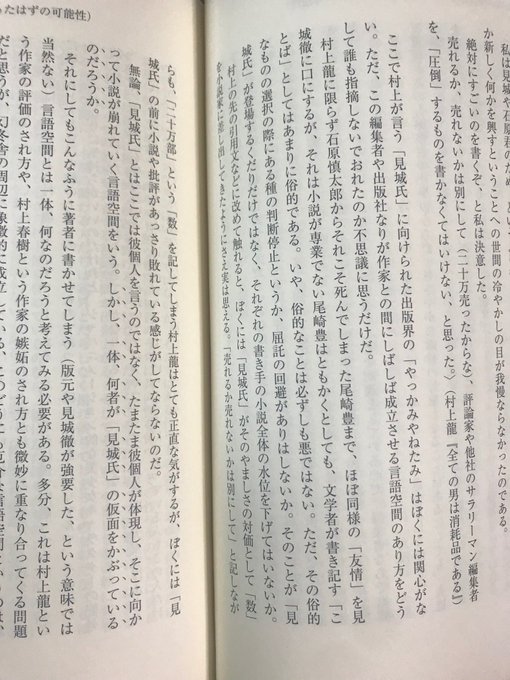 ったはずの可能性)
私は見城や石原君の
か新しく何かを興すということへの世間の冷やかしの目が我慢ならなかったのである。
絶対にすごいのを書くぞ、と私は決意した。
売れるか、売れないかは別にして(二十万売ったからな)、評論家や他社のサラリーマン編集者
を、「圧倒」するものを書かなくてはいけない、と思った。〉(村上龍『全ての男は消耗品である』)
ここで村上が言う「見城氏」に向けられた出版界の「やっかみやねたみ」はぼくには関心がな
い。ただ、この編集者や出版社なりが作家との間にしばしば成立させる言語空間のあり方をどう
して誰も指摘しないでおれたのか不思議に思うだけだ。
村上龍に限らず石原慎太郎からそれこそ死んでしまった尾崎豊まで、ほぼ同様の「友情」を見
城徹に口にするが、それは小説が専業でない尾崎豊はともかくとしても、文学者が書き記す「こ
とば」としてはあまりに俗的である。いや、俗的なことは必ずしも悪ではない。ただ、その俗的
なものの選択の際にある種の判断停止というか、屈託の回避がありはしないか。そのことが「見
城氏」が登場するくだりだけではなく、それぞれの書き手の小説全体の水位を下げてはいないか。
村上の先の引用文などに改めて触れると、ぼくには「見城氏」がそのやましさの対価として「数」
を小説家に差し出してきたようにさえ実は思える。「売れるか売れないかは別にして」と記しなが
らも、「二十万部」という「数」を記してしまう村上龍はとても正直な気がするが、ぼくには「見
城氏」の前に小説や批評があっさり敗れている感じがしてならないのだ。
無論、「見城氏」とはここでは彼個人を言うのではなく、たまたま彼個人が体現し、そこに向か
って小説が崩れていく言語空間をいう。しかし、一体、何者が「見城氏」の仮面をかぶっている
のだろうか。
それにしてもこんなふうに著者に書かせてしまう 版元や見城徹が強要した、という意味では
当然ない 言語空間とは一体、何なのだろうと考えてみる必要がある。多分、これは村上龍とい
う作家の評価のされ方や、村上春樹という作家の嫉妬のされ方とも微妙に重なり合ってくる問題
だと思うが、幻冬舎の周辺に象徴的に成立している、このどうにも